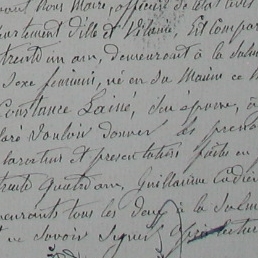 devant Nous Maire, officier de l'état civil
département d'ille et Vilaine, Est Comparu
trente un ans, demeurant à la
sexe féminin, né en Sa Maison ce
Constance Lainé, Son épouse, à
déclaré Vouloir donner les prénoms
déclaration et présentation faites en
trente quatre ans, Guillaume
demeurants tous les deux à la
ne Savoir Signer